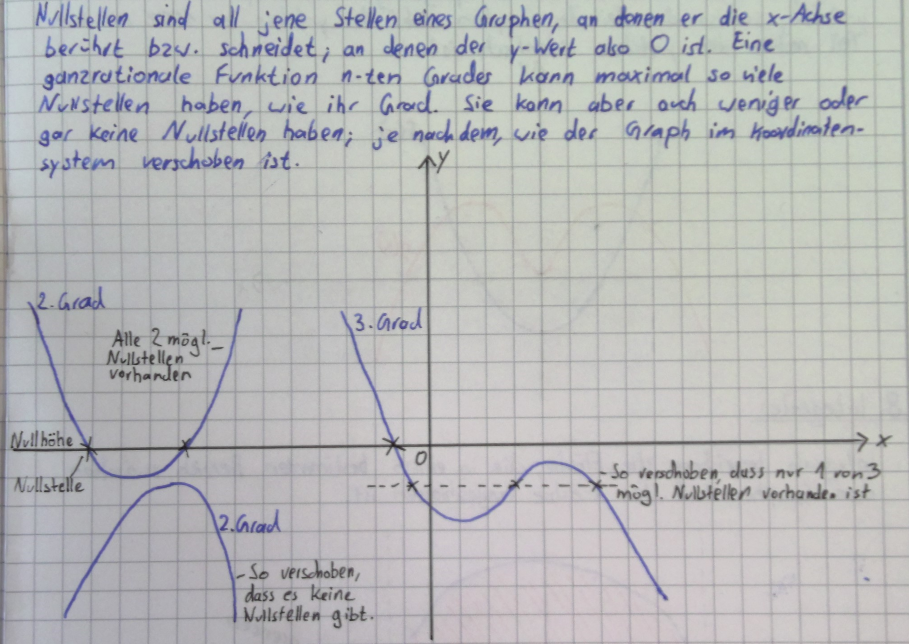 Nullstellen sind all jene Stellen eines Graphen, an denen er die x-Achse
berührt bzw. schneidet; an denen der y-Wert also 0 ist. Eine
ganzrationale Funktion n-ten Grades kann maximal so viele
Nullstellen haben, wie ihr Grad. Sie kann aber auch weniger oder
gar keine Nullstellen haben; je nachdem, wie der Graph im Koordinaten-
system verschoben ist.
y
2. Grad
Alle 2 mögl.
Nullstellen
vorhanden
3. Grad
Nullhöhe
x
0
Nullstelle
- So verschoben, dass nur 1 von 3
mögl. Nullstellen vorhanden ist
2. Grad
- So verschoben,
dass es keine
Nullstellen gibt.